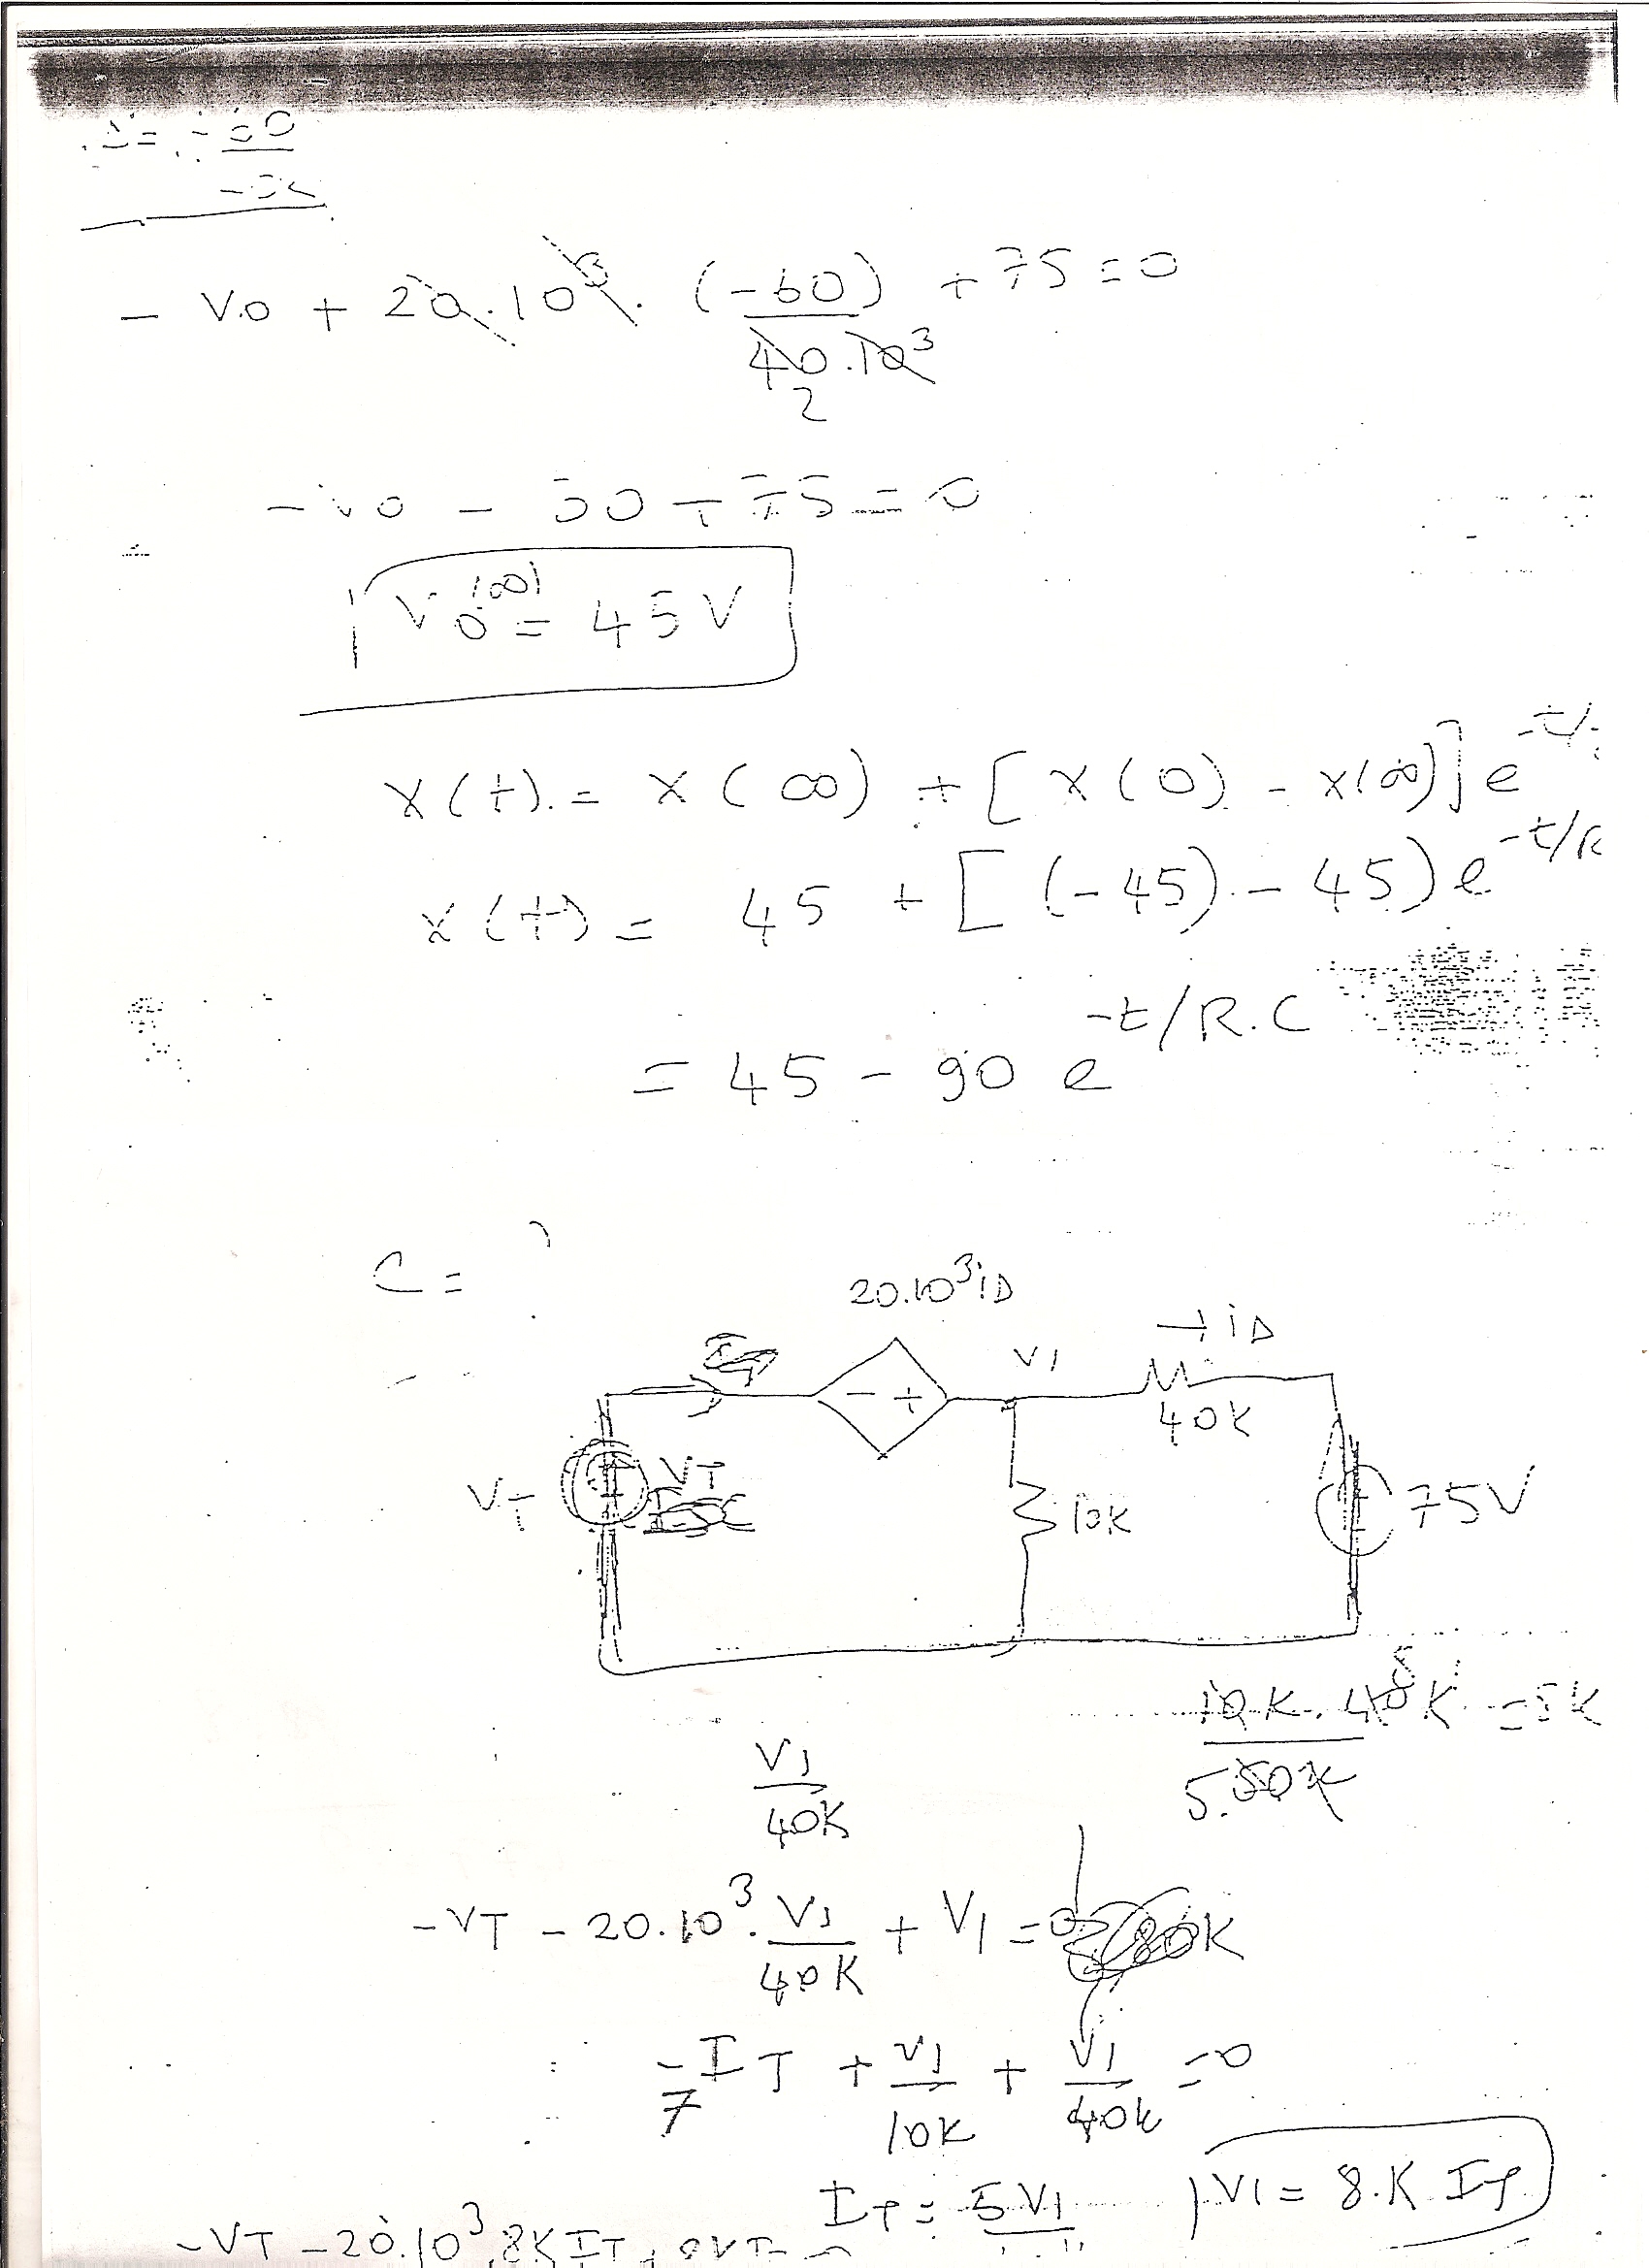 - Vo + 20.10³. (-60)/40.10³ + 75 = 0
2
- Vo - 30 + 75 = 0
Vo(∞) = 45 V
x(t) = x(∞) + [x(0) - x(∞)] e^-t/
x(t) = 45 + [(-45) - 45) e^-t/R
= 45 - 90 e^-t/R.C
C =
20.10³ iD
→ iD
V1
- +
40K
VT
VT
10K
75V
10K. 40K = 8K
5.50K
V1/40K
-VT - 20.10³. V1/40K + V1 = 0
-IT + V1/10K + V1/40K = 0
7
IT = 5V1
V1 = 8.K IT
-VT - 20.10³.8K IT